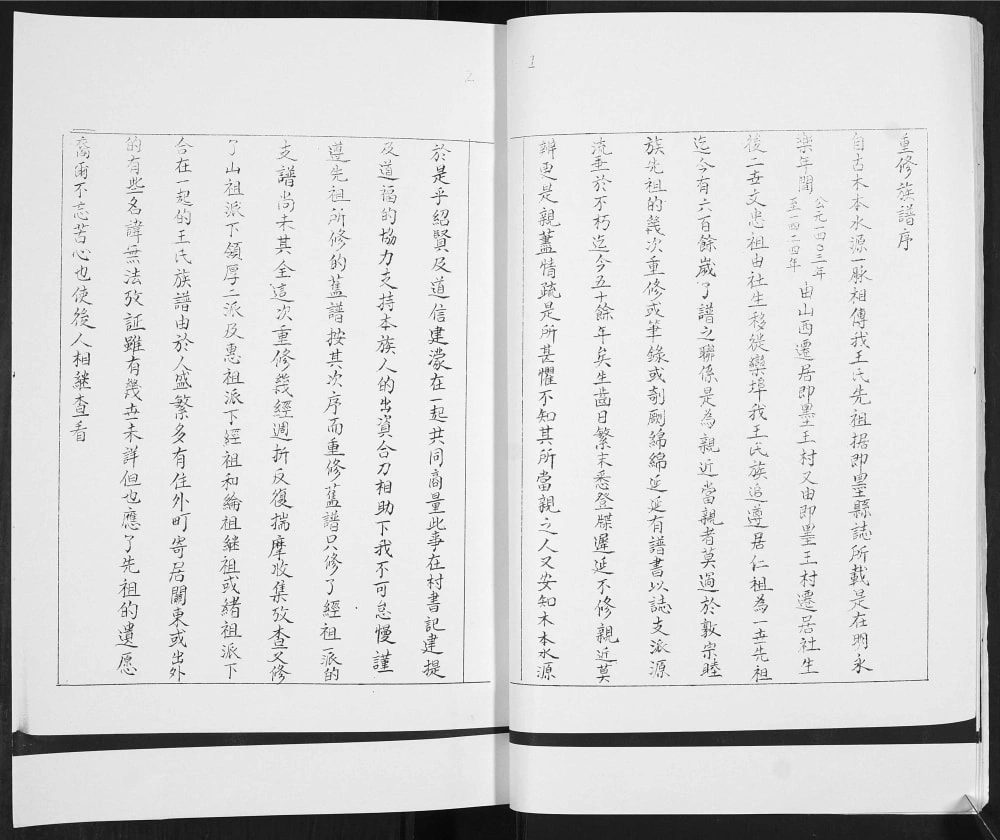 1
重修族譜序
自古木本水源一脉相傳我王氏先祖据即墨縣誌所載是在明永
樂年間 公元一四〇三年至一四二四年 由山西遷居即墨王村又由即墨王村遷居社生
後二世文忠祖由社生移從欒埠我王氏族追遵居仁祖為一世先祖
迄今有六百餘嵗了譜之聯係是為親近當親者莫過於敦宗睦
族先祖的幾次重修或筆錄或剞劂綿綿延延有譜書以誌支派源
流垂於不朽迄今五十餘年矣生齒日繁未悉登牒遲延不修親近莫
辨更是親蓋情疏是所甚懼不知其所當親之人又安知木本水源
2
於是乎紹賢及道信建濛在一起共同商量此事在村書記建提
及道福的協力支持本族人的出資合力相助下我不可怠慢謹
遵先祖所修的舊譜按其次序而重修舊譜只修了經祖一派的
支譜尚未其全這次重修幾經週折反復揣摩收集攷查又修
了山祖派下領厚二派及惠祖派下經祖和綸祖継祖或緒祖派下
合在一起的王氏族譜由於人盛繁多有住外町寄居關東或出外
的有些名諱無法攷証雖有幾世未詳但也應了先祖的遺愿
裔爾不忘苦心也使後人相継查看